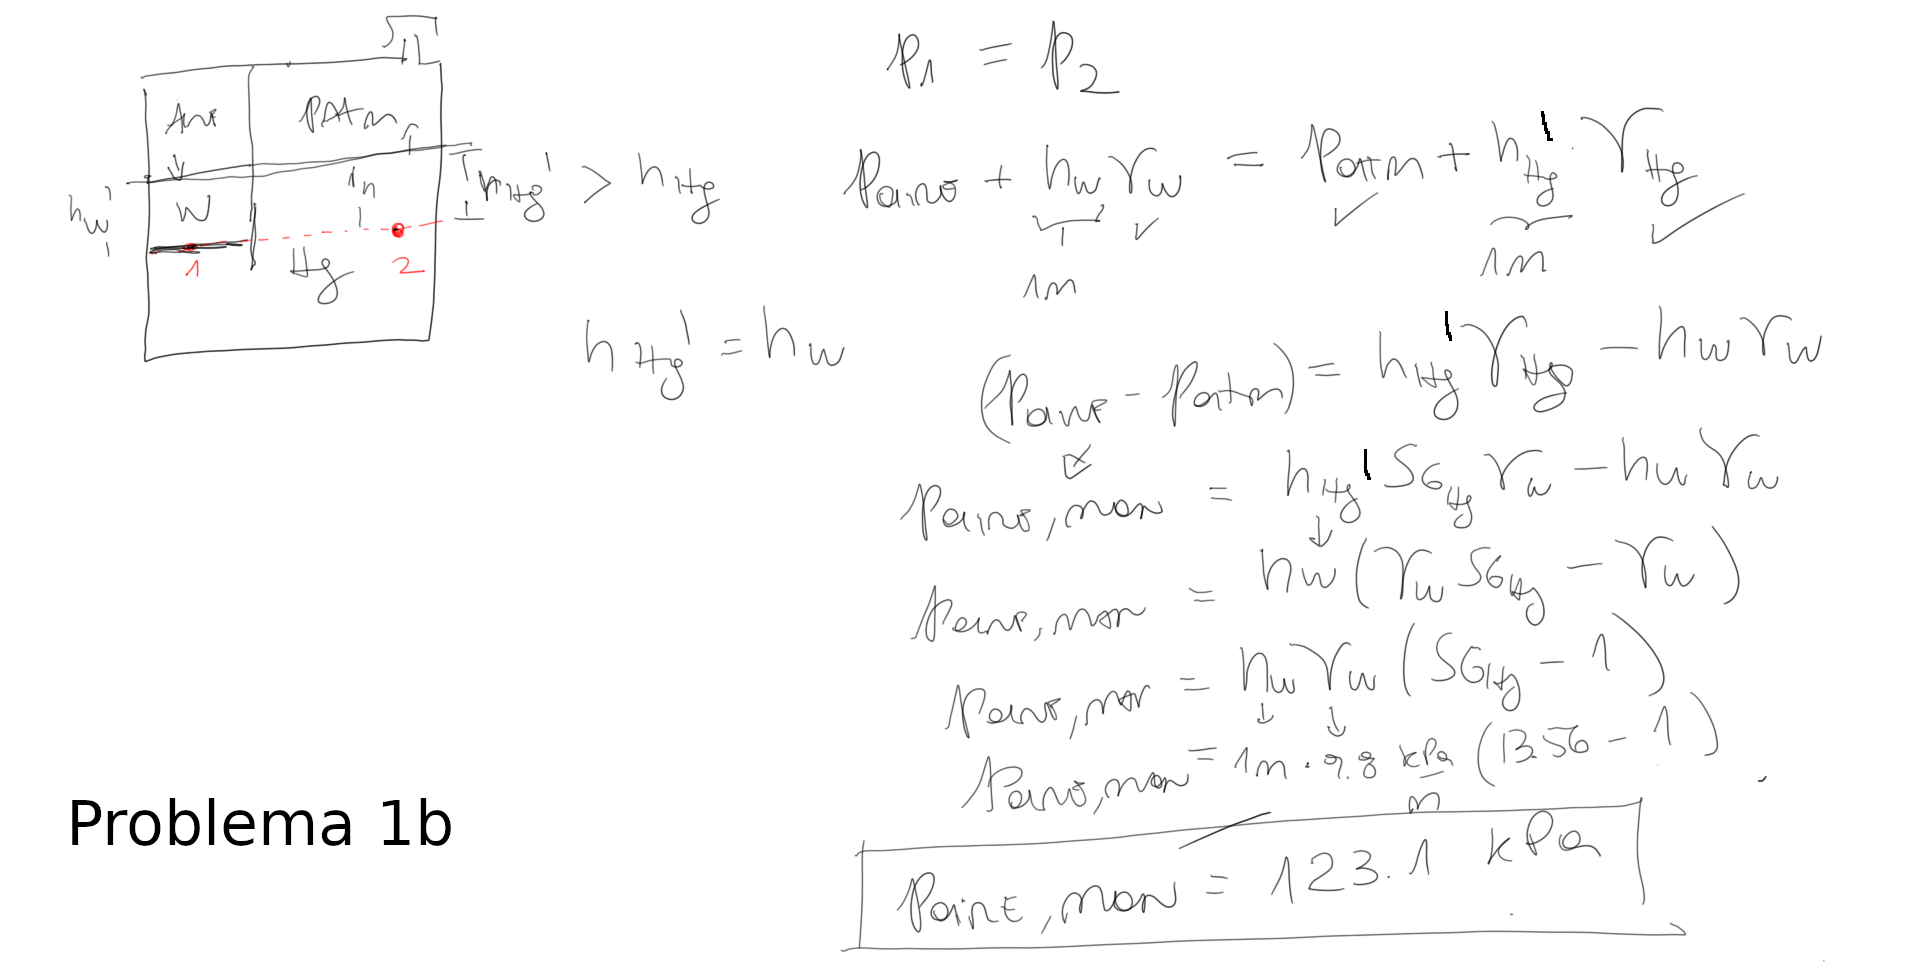 Aire PAtm
hw' W h h_Hg' > h_Hg
1 Hg 2
h_Hg' = hw
P1 = P2
Paire + hw γw = Patm + h_Hg' · γ_Hg
1m 1m
(Paire - Patm) = h_Hg' γ_Hg - hw γw
Paire, man = h_Hg' SG_Hg γw - hw γw
Paire, man = hw (γw SG_Hg - γw)
Paire, man = hw γw (SG_Hg - 1)
Paire, man = 1m · 9.8 kPa/m (13.56 - 1)
Paire, man = 123.1 kPa
Problema 1b